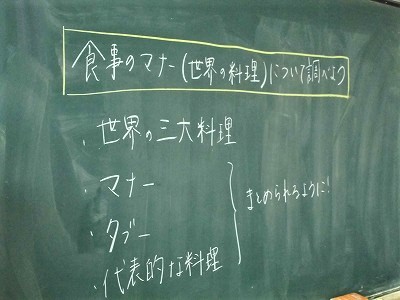 食事のマナー(世界の料理)について調べよう
・世界の三大料理
・マナー
・タブー
・代表的な料理
まとめられるように!